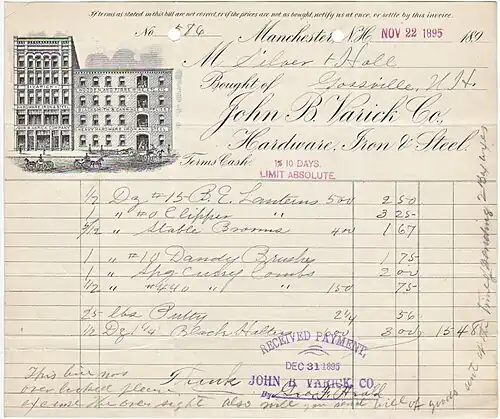 If terms as stated in this bill are not correct, or if the prices are not as bought, notify us at once, or settle by this invoice.
No 586
Manchester, N.H. NOV 22 1895 189
M Silver & Hall
Bought of Gossville, N.H.
John B. Varick Co.,
Hardware, Iron & Steel.
Terms Cash.
10 DAYS.
LIMIT ABSOLUTE.
HEAVY HARDWARE, IRON AND STEEL
1/2 Dz #15 B.E. Lanterns 500 2 50
1 " #0 Clipper " 3 25
5/12 " Stable Brooms 400 1 67
1 " #10 Dandy Brushes 1 75
1 " Spg Curry Combs 2 00
1/2 " #440 " " 150 75
25 lbs Putty 2 1/4 56
1/2 Dz 1 1/4 Black Halters 3 00 15 48
RECEIVED PAYMENT,
DEC 31 1895
JOHN B. VARICK CO.
By
This bill was
overlooked please
excuse the over sight also will you send bill of goods
sent at the time